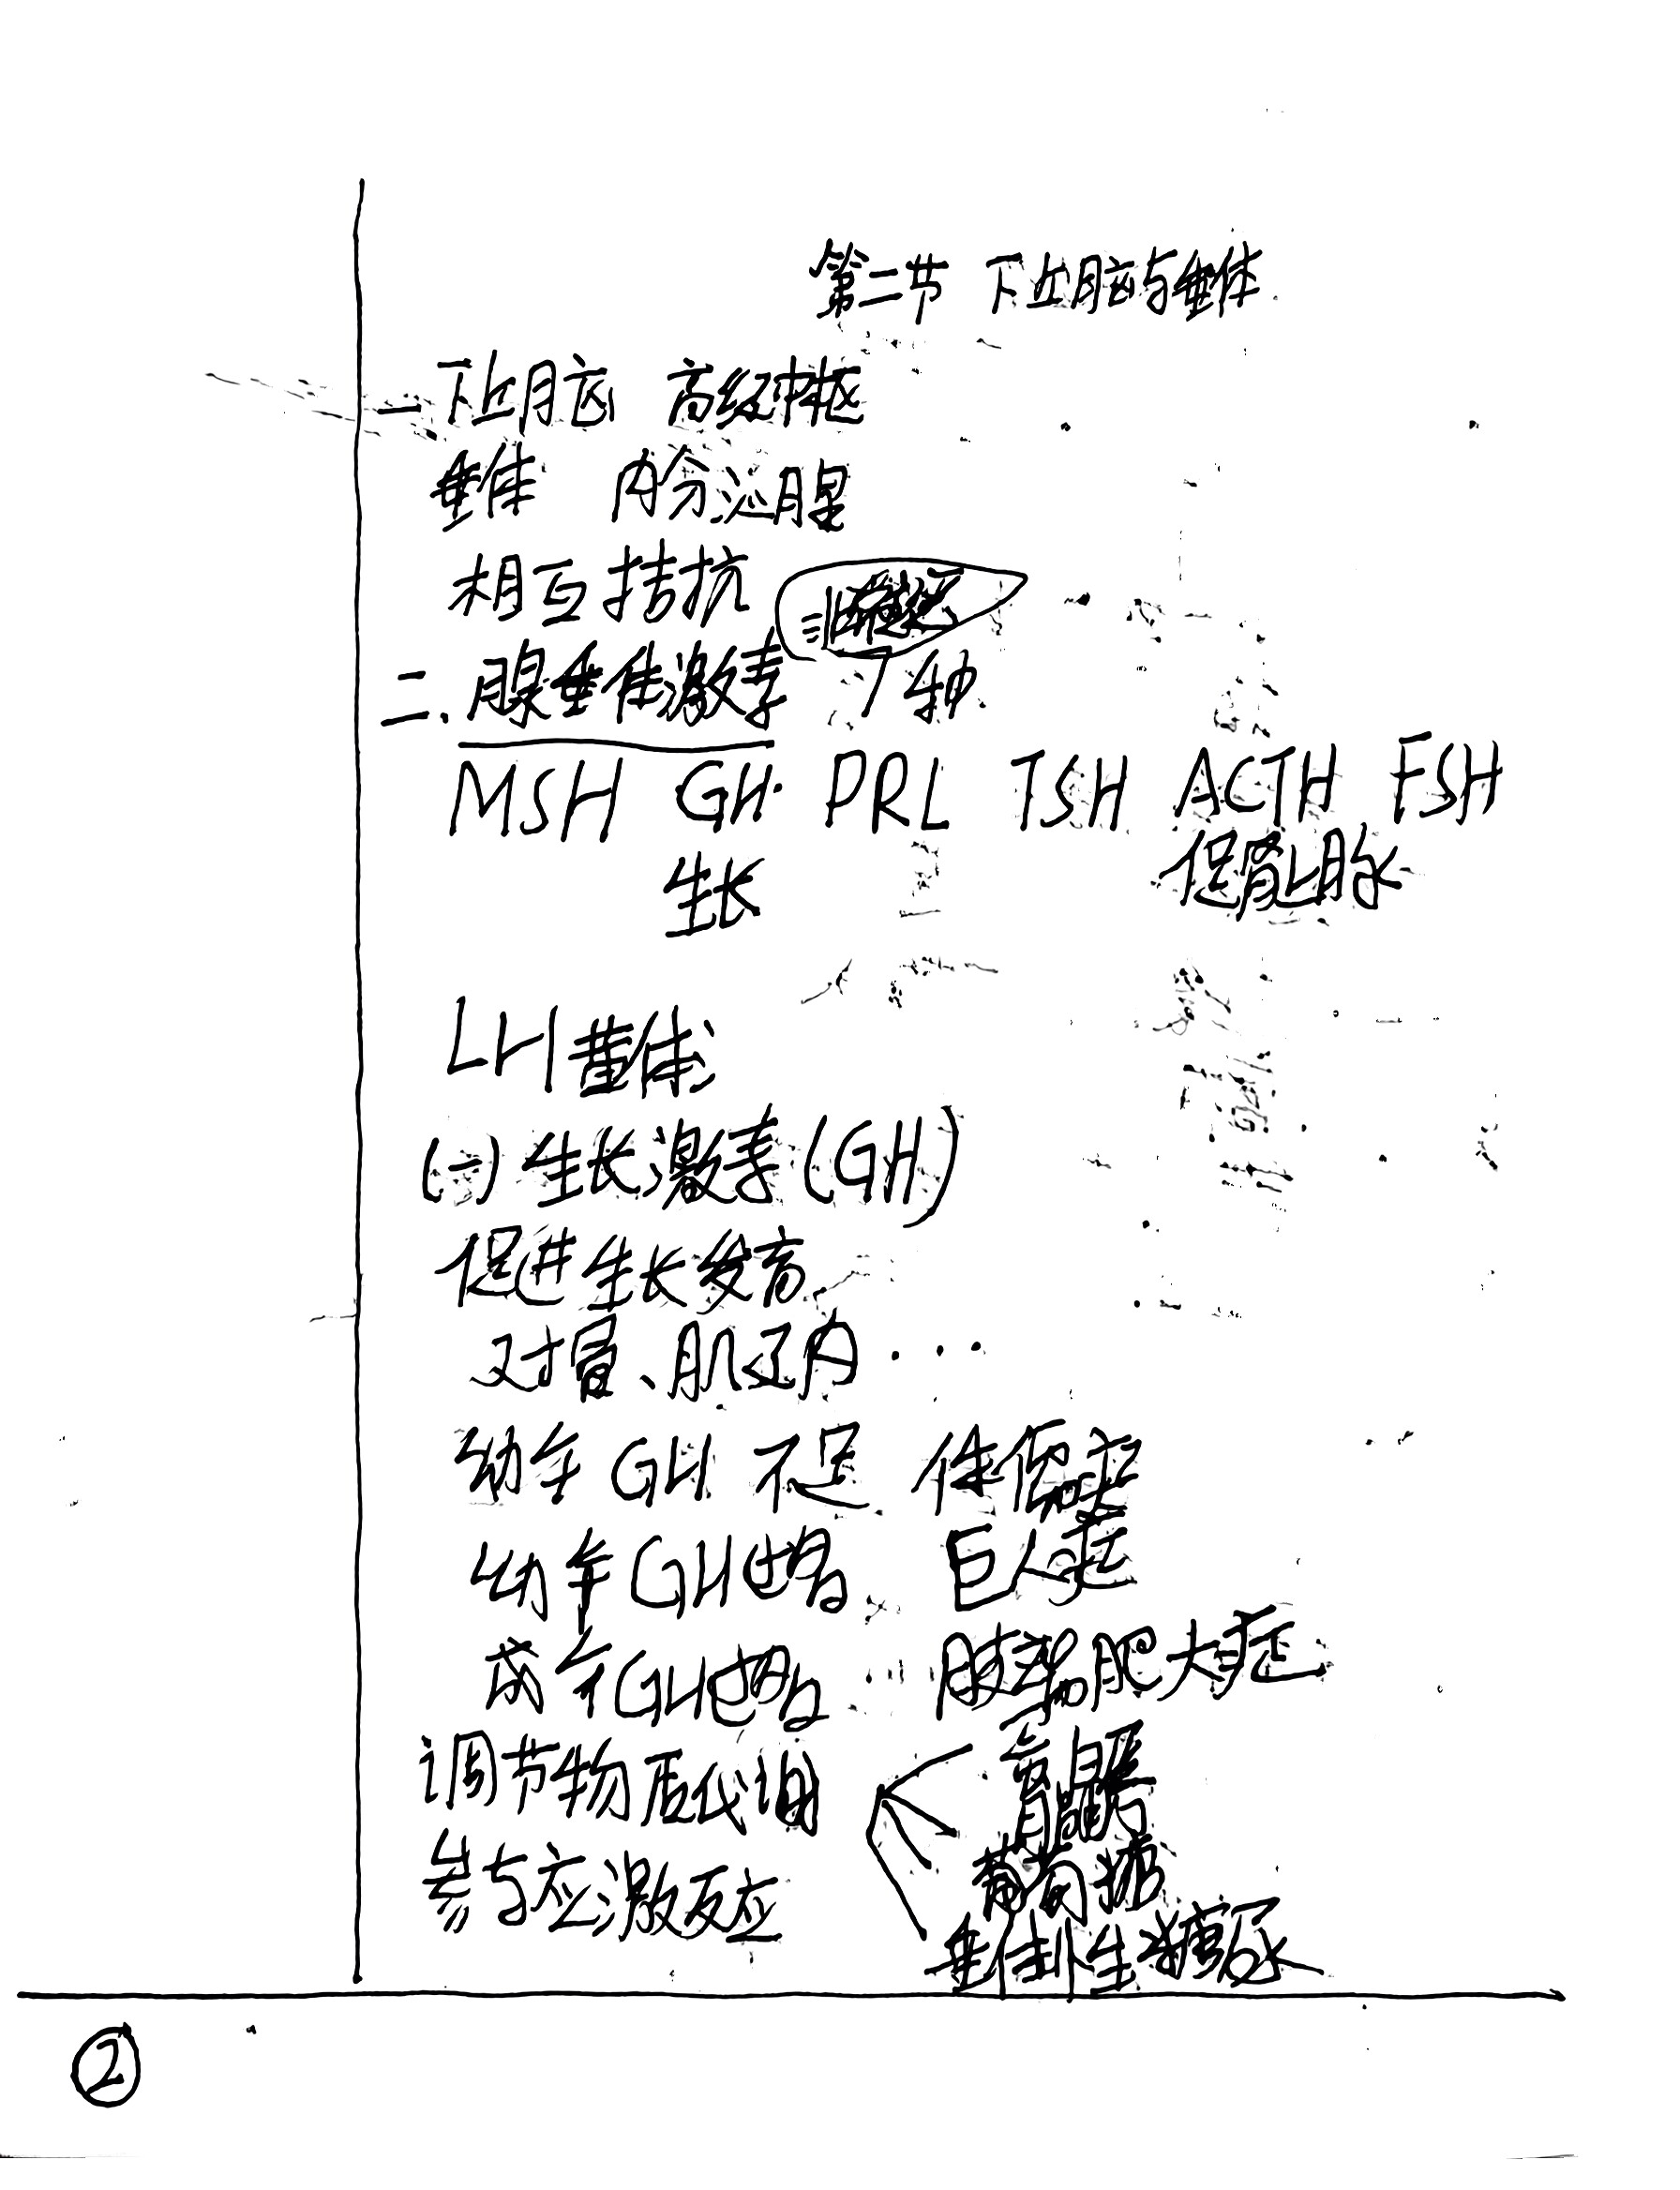 第二节 下丘脑与垂体
一下丘脑 高级中枢
垂体 内分泌腺
相互拮抗
二.腺垂体激素 7种
MSH GH PRL TSH ACTH FSH
生长
LH 黄体
(二)生长激素(GH)
促进生长发育
对骨、肌肉...
幼年GH不足 侏儒症
幼年GH过多 巨人症
成年GH过多 肢端肥大症
调节物质代谢
参与应激反应
葡萄糖
垂体性糖尿
②